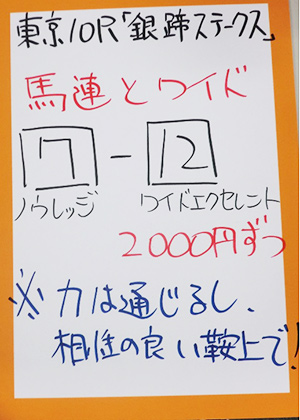 東京10R「銀蹄ステークス」
馬連とワイド
7 - 12
ノウレッジ ワイドエクセレント
2000円ずつ
※力は通じるし、
相性の良い鞍上で!